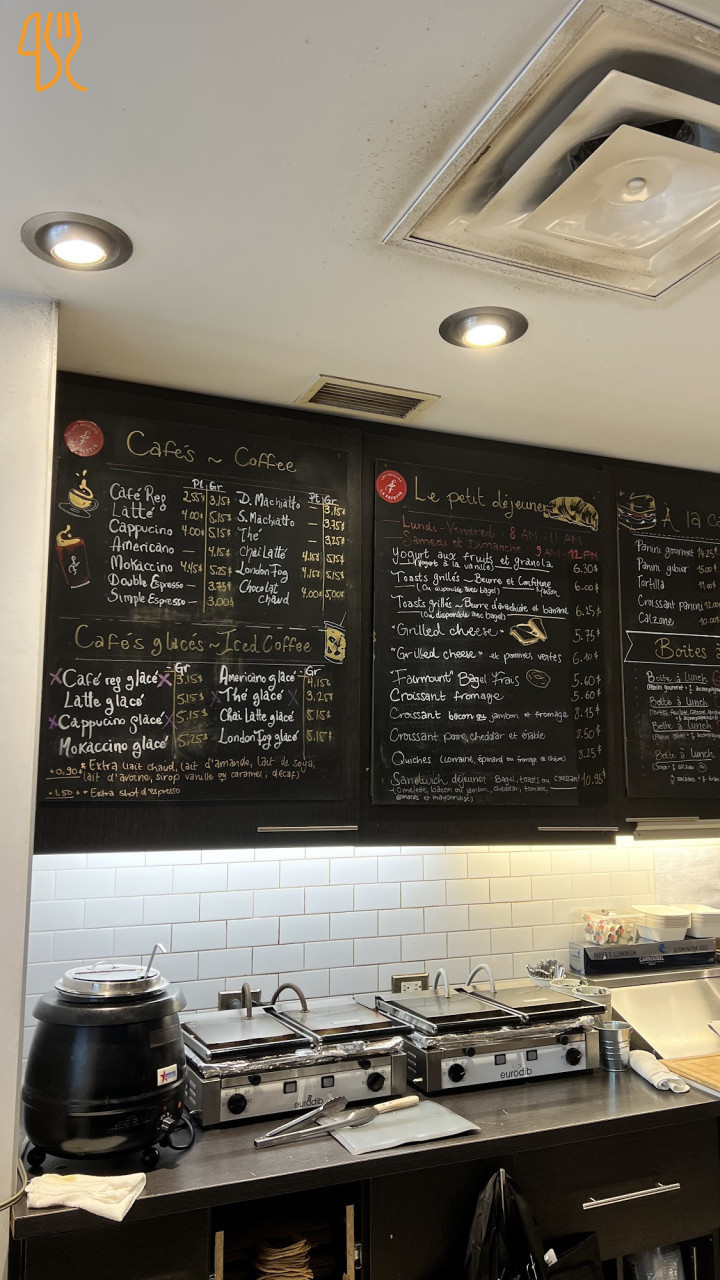 Cafés ~ Coffee
Pt Gr
Café Reg 2.55$ 3.15$
Latté 4.00$ 5.15$
Cappucino 4.00$ 5.15$
Americano — 4.15$
Mokaccino 4.45$ 5.25$
Double Espresso — 3.75$
Simple Espresso — 3.00$
Pt Gr
D. Machiatto — 3.75$
S. Machiatto — 3.35$
Thé — 3.25$
Chai Latté 4.15$ 5.15$
London Fog 4.15$ 5.15$
Chocolat chaud 4.00$ 5.00$
Cafés glacés ~ Iced Coffee
Gr
Café reg glacé 3.15$
Latté glacé 5.15$
Cappucino glacé 5.15$
Mokaccino glacé 5.25$
Gr
Americano glacé 4.15$
Thé glacé 3.25$
Chai Latte glacé 5.15$
London Fog glacé 5.15$
+0.90 * Extra lait chaud, lait d'amande, lait de soya,
lait d'avoine, sirop vanille ou caramel, décaf)
+1.50 ** Extra shot d'espresso
Le petit déjeuner
Lundi - Vendredi 8 AM - 11 AM
Samedi et Dimanche 9 AM - 12 PM
Yogurt aux fruits et granola 6.30$
(Yogurt à la vanille)
Toasts grillés ~ Beurre et Confiture Maison 6.00$
(Ou disponible avec bagel)
Toasts grillés ~ Beurre d'arachide et banane 6.15$
(Ou disponible avec bagel)
"Grilled cheese" 5.75$
"Grilled cheese" et pommes vertes 6.10$
"Fairmount" Bagel frais 5.60$
Croissant fromage 5.60$
Croissant bacon ou jambon et fromage 8.15$
Croissant poire, cheddar et érable 8.50$
Quiches (Lorraine, épinard ou fromage de chèvre) 8.25$
Sandwich déjeuner Bagel, toasts ou croissant 10.95$
(Omelette, bacon ou jambon, cheddar, tomate,
épinards et mayonnaise)
À la c
Panini gourmet
Panini
Tortilla
Croissant panini
Calzone
Boîtes à
Boîte à lunch
Boîte à lunch
Boîte à lunch
Boîte à lunch
eurodib
eurodib